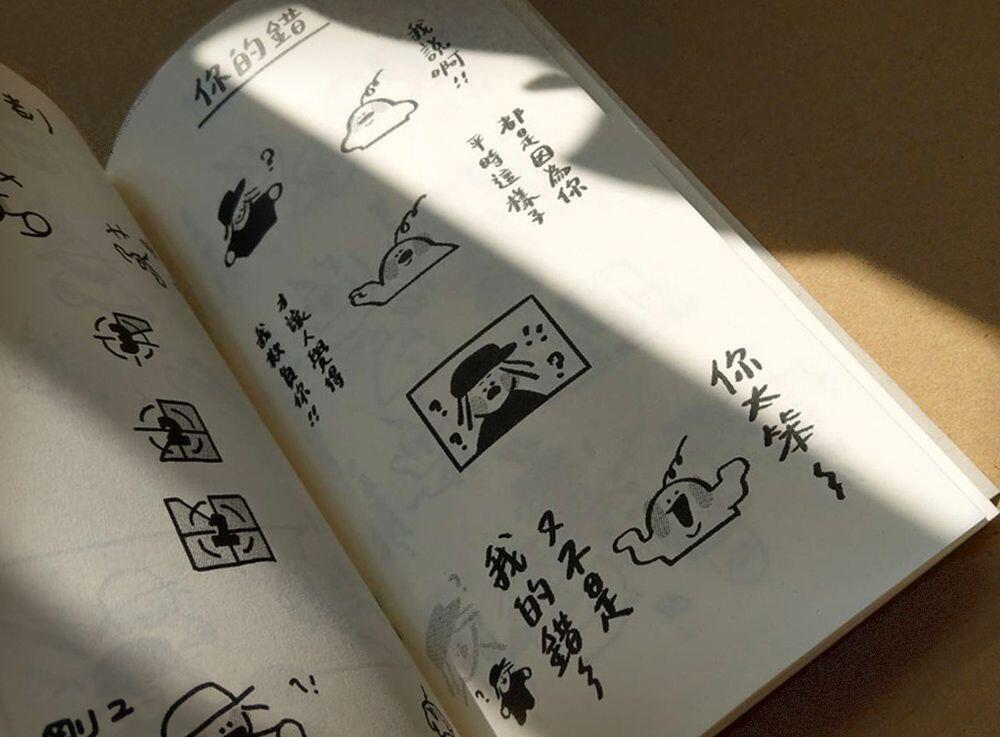 你的錯
我說啊!!
?
都是因為你
平時這樣子
才讓人覺得
我欺負你!!
? ? ?
你太笨
又不是
我的錯
?
?
?!